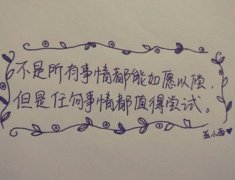 不是所有事情都能如愿以偿,
但是任何事情都值得尝试。